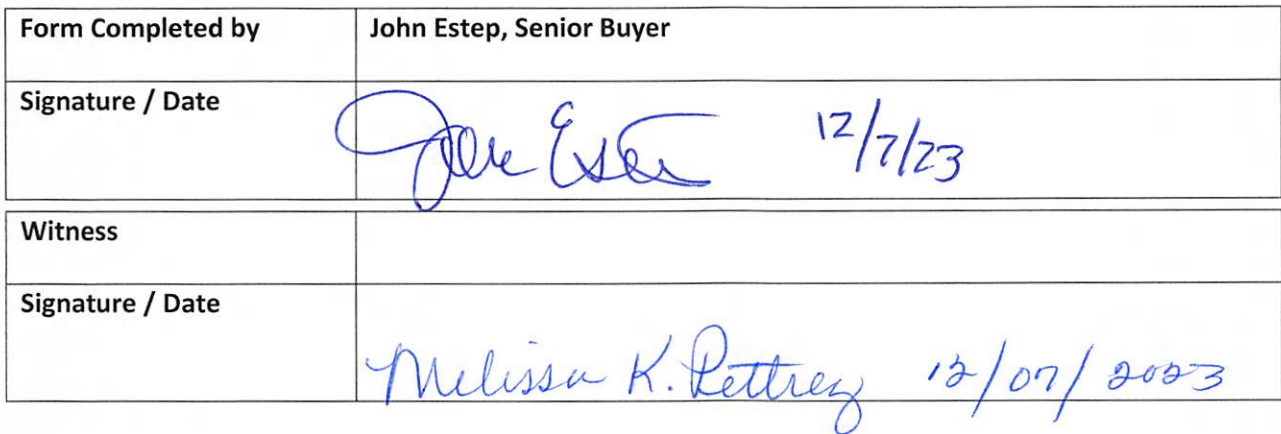 Form Completed by John Estep, Senior Buyer
Signature / Date John Estep 12/7/23
Witness
Signature / Date
Melissa K. Pettrey 12/07/2023